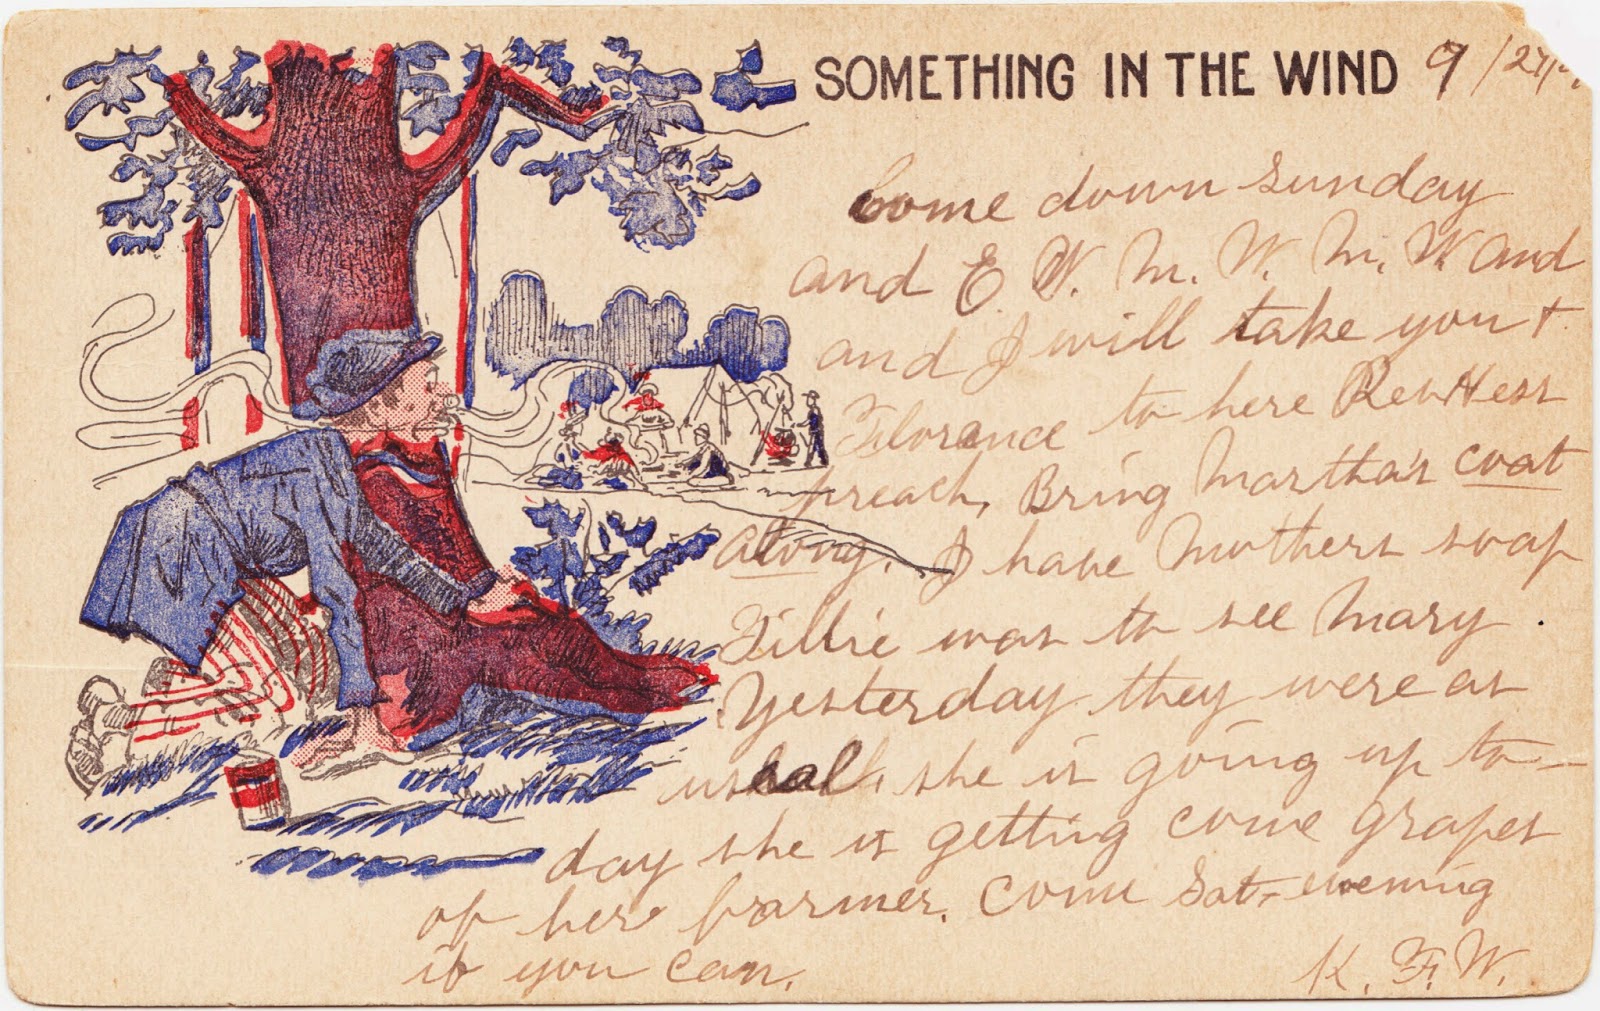 SOMETHING IN THE WIND 9/27
Come down Sunday
and E W. M. W. M. W. and
and I will take you +
Florence to here Rev Hess
preach, Bring Martha's coat
along. I have Mothers soap
Tillie was to see Mary
Yesterday they were as
ushal, she is going up to-
day she is getting come grapes
of here farmer. Come Sat- evening
if you can. K. F. W.